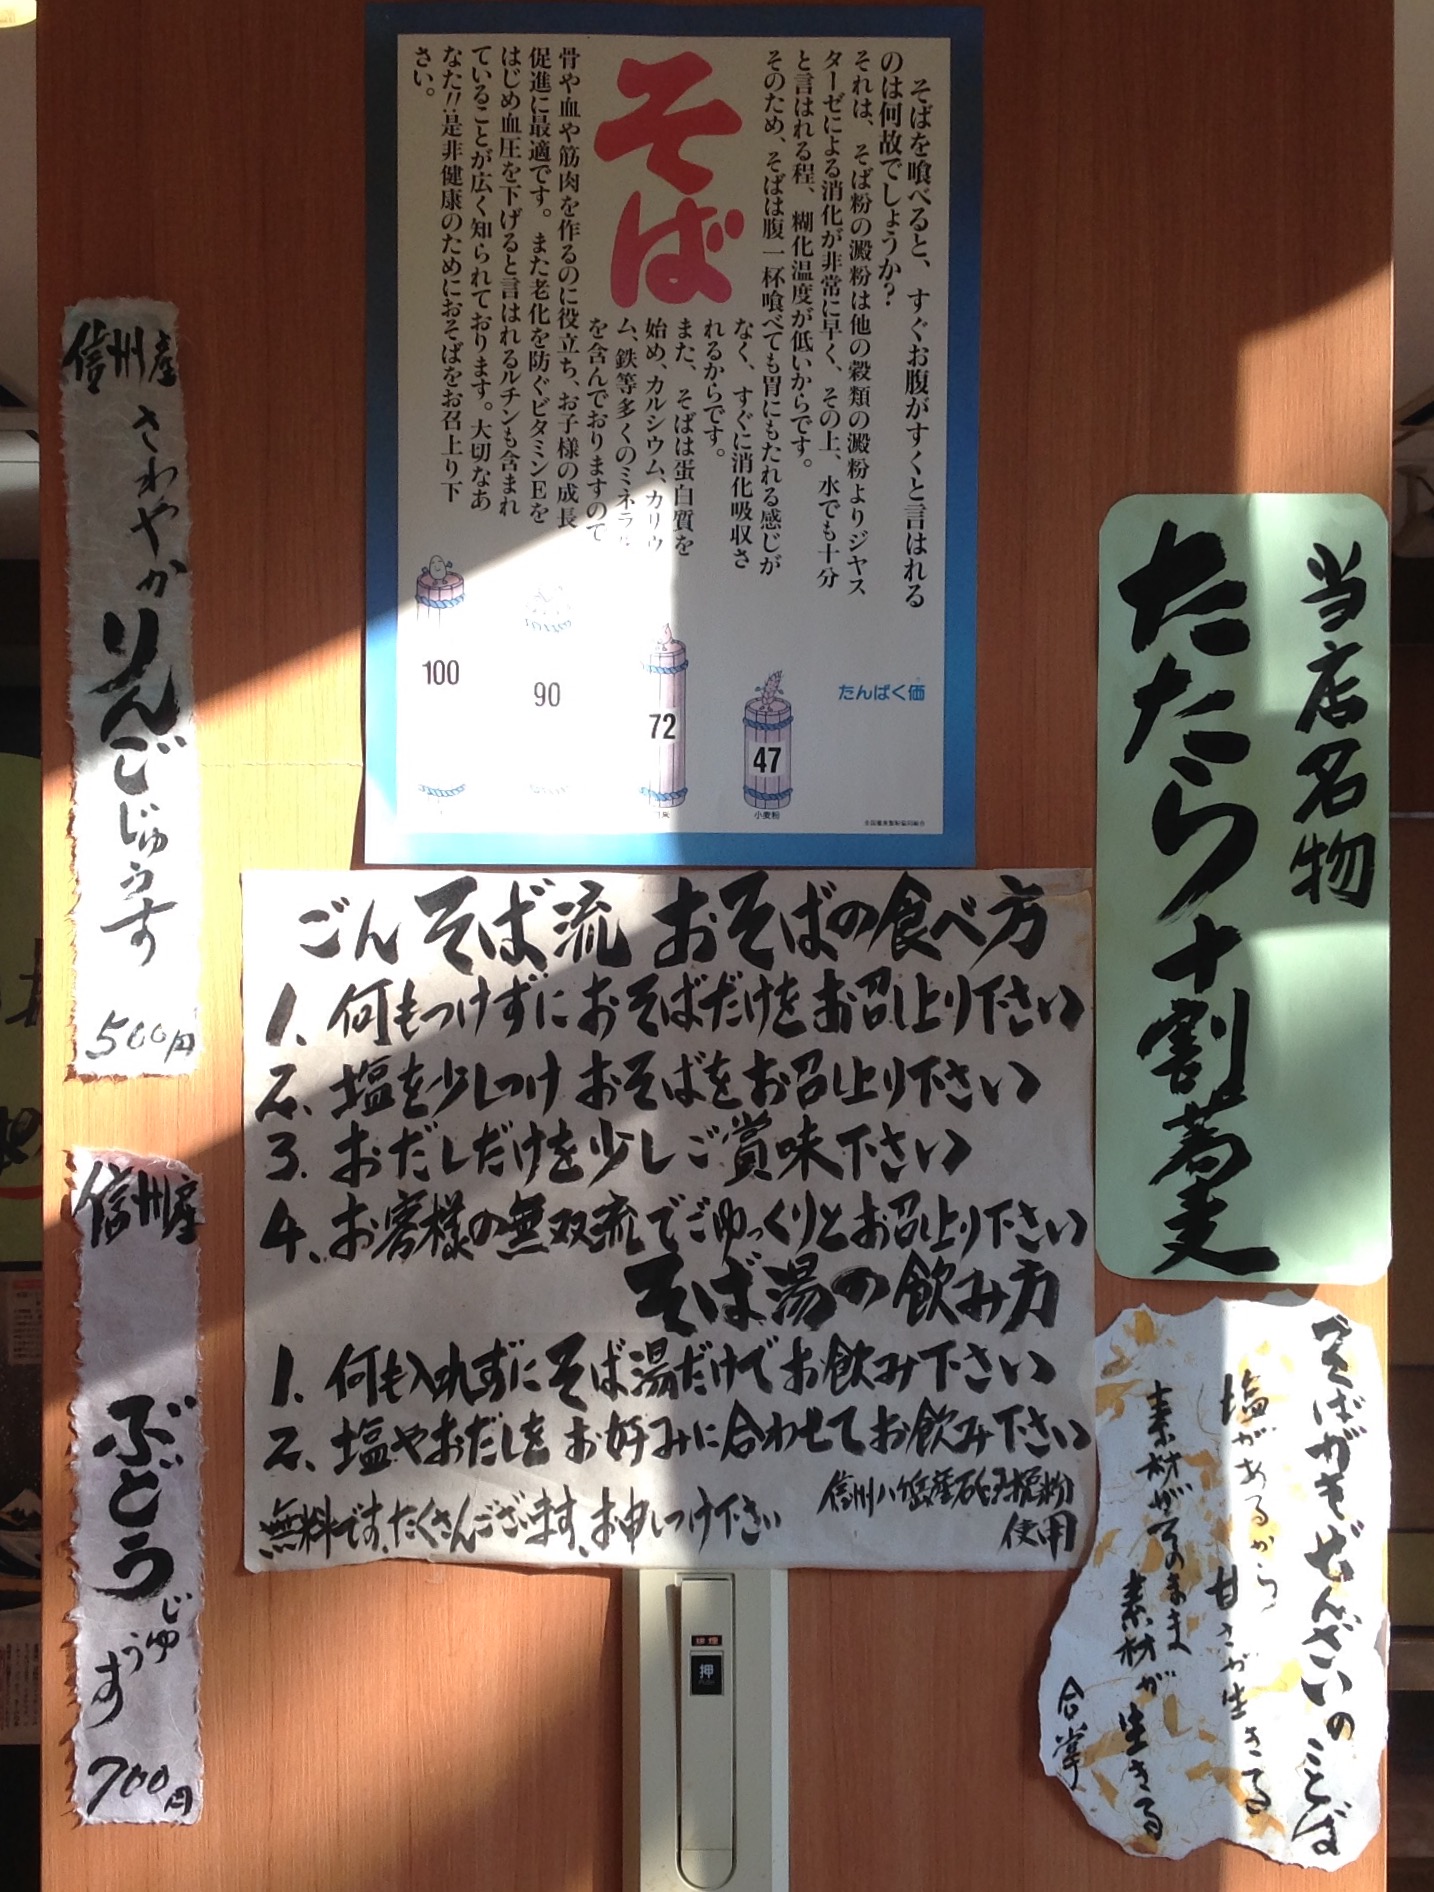 そば
そばを喰べると、すぐお腹がすくと言はれる
のは何故でしょうか?
それは、そば粉の澱粉は他の穀類の澱粉よりジヤス
ターゼによる消化が非常に早く、その上、水でも十分
と言はれる程、糊化温度が低いからです。
そのため、そばは腹一杯喰べても胃にもたれる感じが
なく、すぐに消化吸収さ
れるからです。
また、そばは蛋白質を
始め、カルシウム、カリウ
ム、鉄等多くのミネラル
を含んでおりますので
骨や血や筋肉を作るのに役立ち、お子様の成長
促進に最適です。また老化を防ぐビタミンEを
はじめ血圧を下げると言はれるルチンも含まれ
ていることが広く知られております。大切なあ
なた!!是非健康のためにおそばをお召上り下
さい。
たんぱく価
100
90
72
47
小麦粉
信州産
さわやか
りんごじゅうす
500円
信州産
ぶどう
じゅうす
700円
当店名物
たたら十割蕎麦
ごんそば流 おそばの食べ方
1、何もつけずにおそばだけをお召し上り下さい
2、塩を少しつけおそばをお召し上り下さい
3、おだしだけを少しご賞味下さい
4、お客様の無双流でごゆっくりとお召し上り下さい
そば湯の飲み方
1、何も入れずにそば湯だけでお飲み下さい
2、塩やおだしをお好みに合わせてお飲み下さい
無料です、たくさんございます、お申しつけ下さい
信州八ヶ岳産石臼挽粉
使用
そばがきぜんざいのことば
塩があるから 甘さが生きる
素材がそのまま 素材が生きる
合掌
押